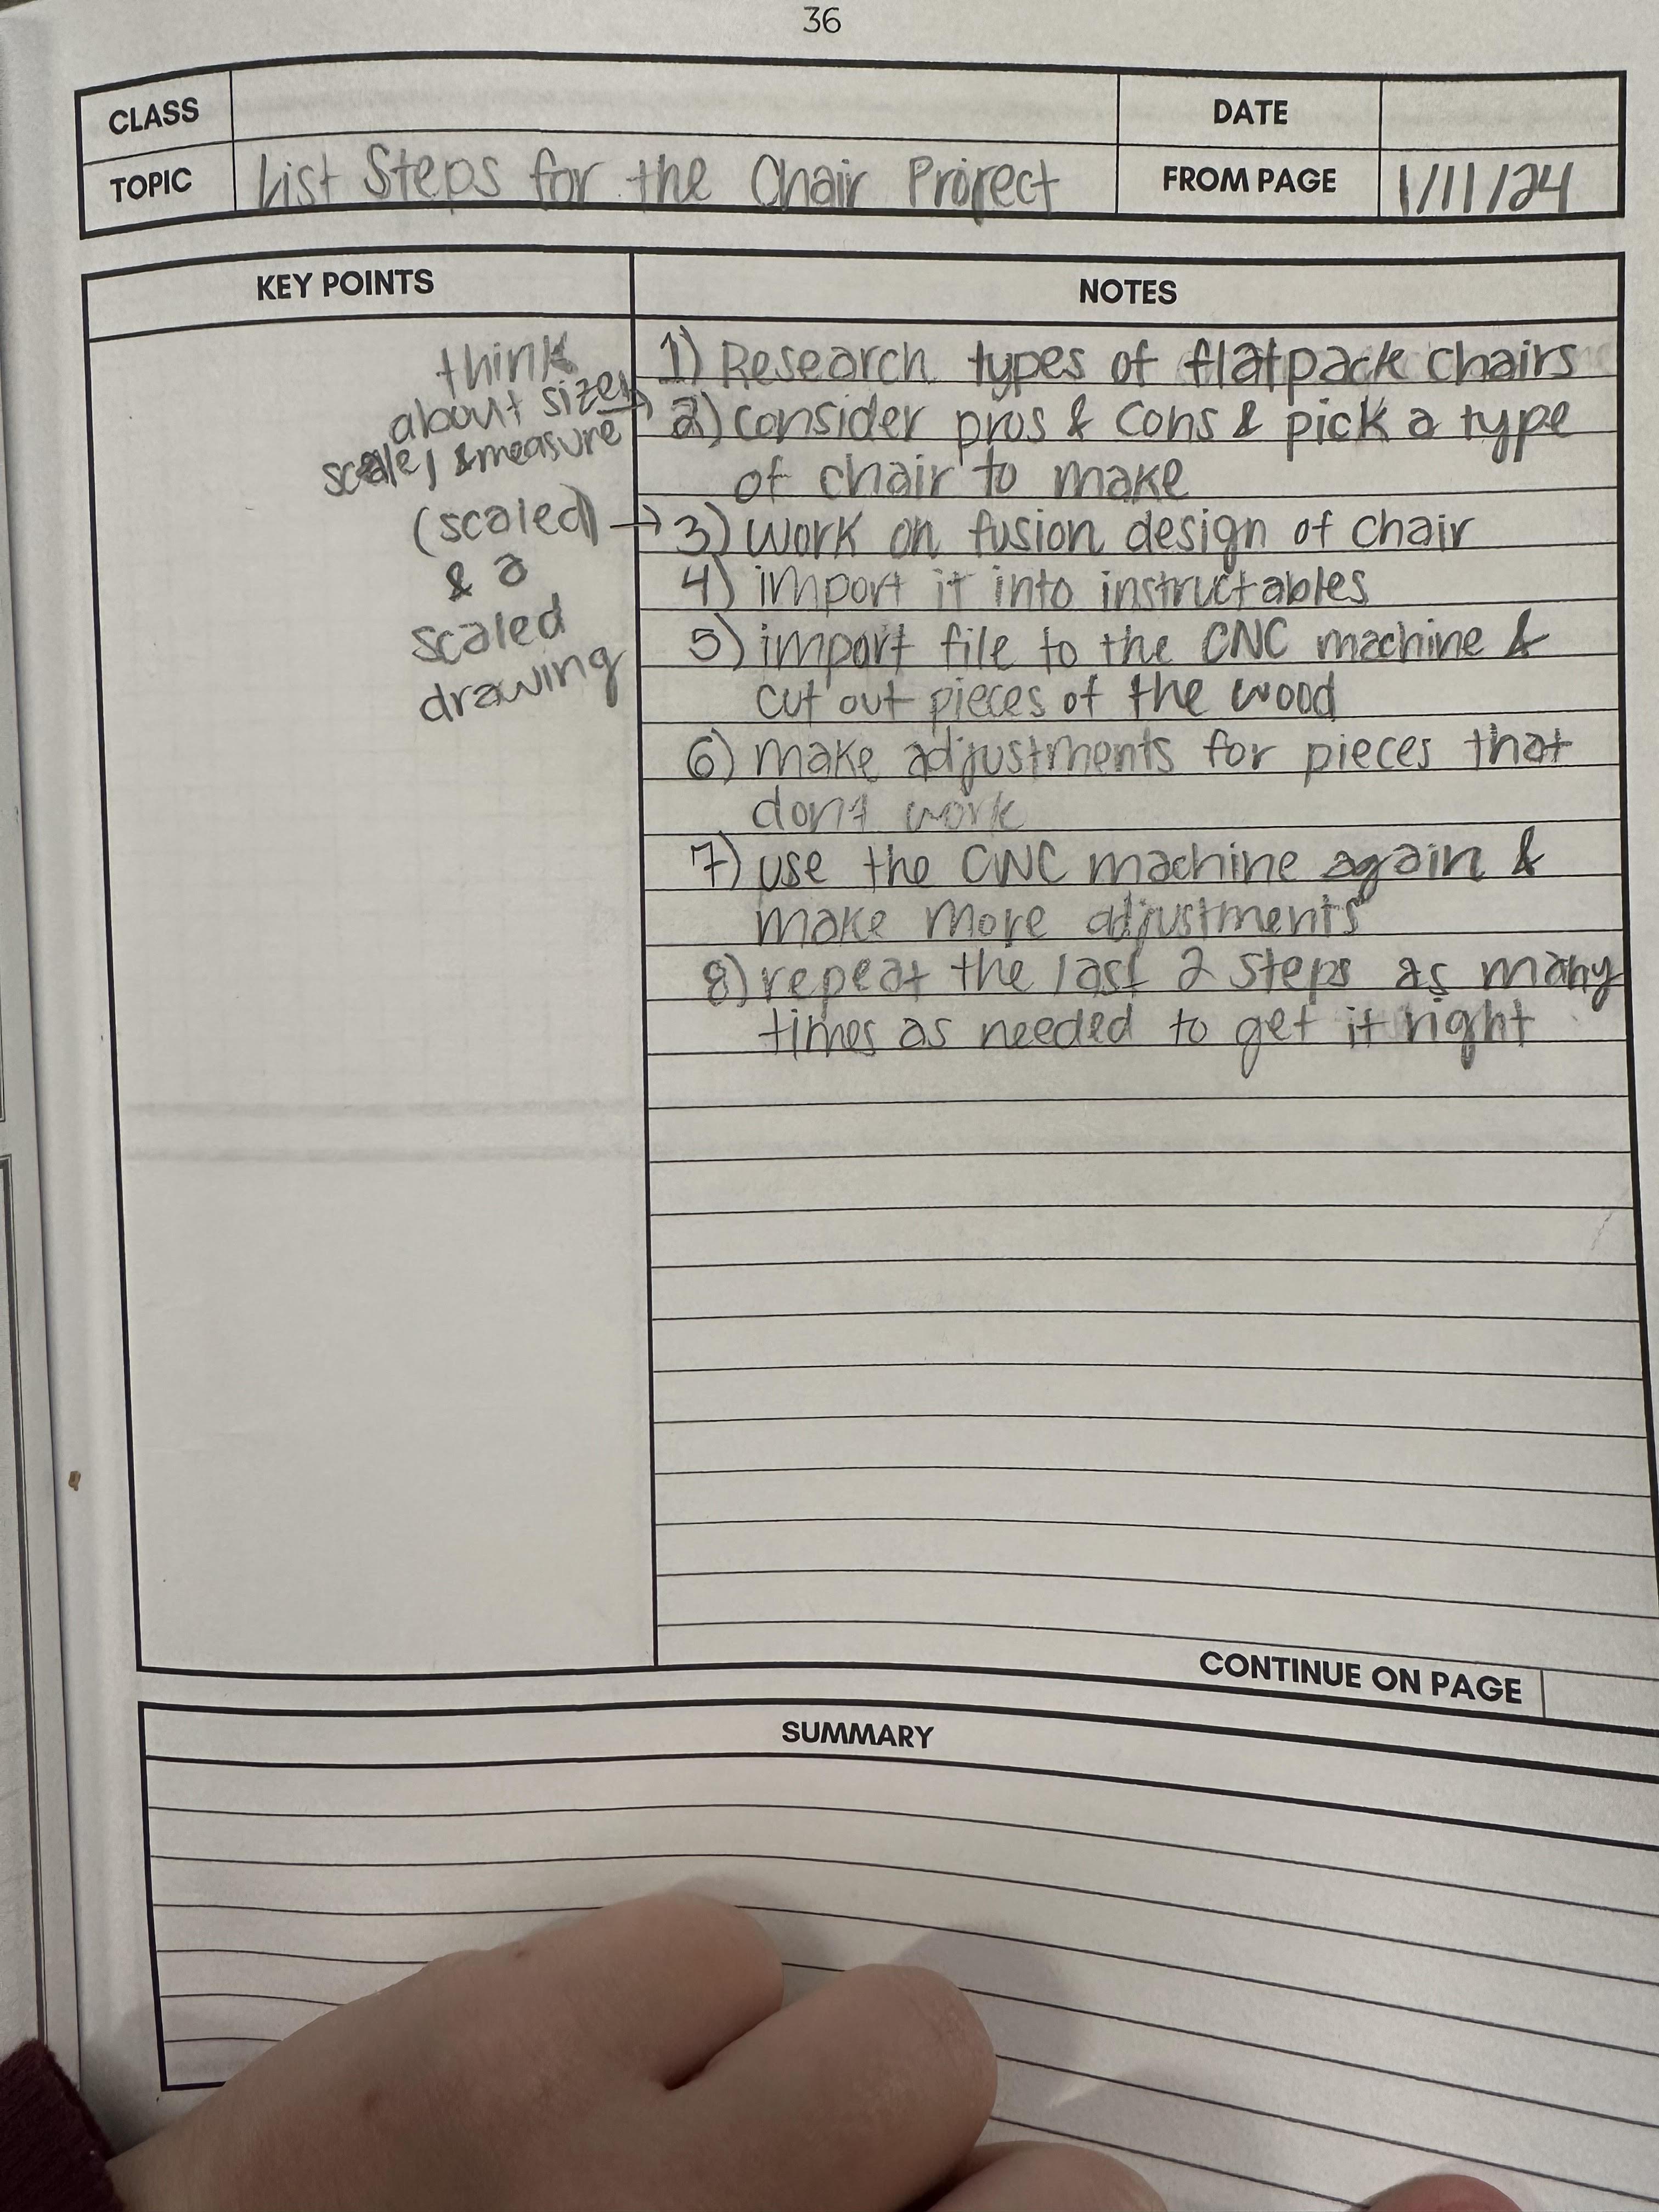 36
CLASS
DATE
TOPIC List Steps for the Chair Project FROM PAGE 1/11/24
KEY POINTS
NOTES
think
about size,
scale, & measure →
(scaled) →
& a
scaled
drawing
1) Research types of flatpack chairs
2) consider pros & cons & pick a type
of chair to make
3) work on fusion design of chair
4) import it into instructables
5) import file to the CNC machine &
cut out pieces of the wood
6) make adjustments for pieces that
dont work
7) use the CNC machine again &
make more adjustments
8) repeat the last 2 steps as many
times as needed to get it right
CONTINUE ON PAGE
SUMMARY